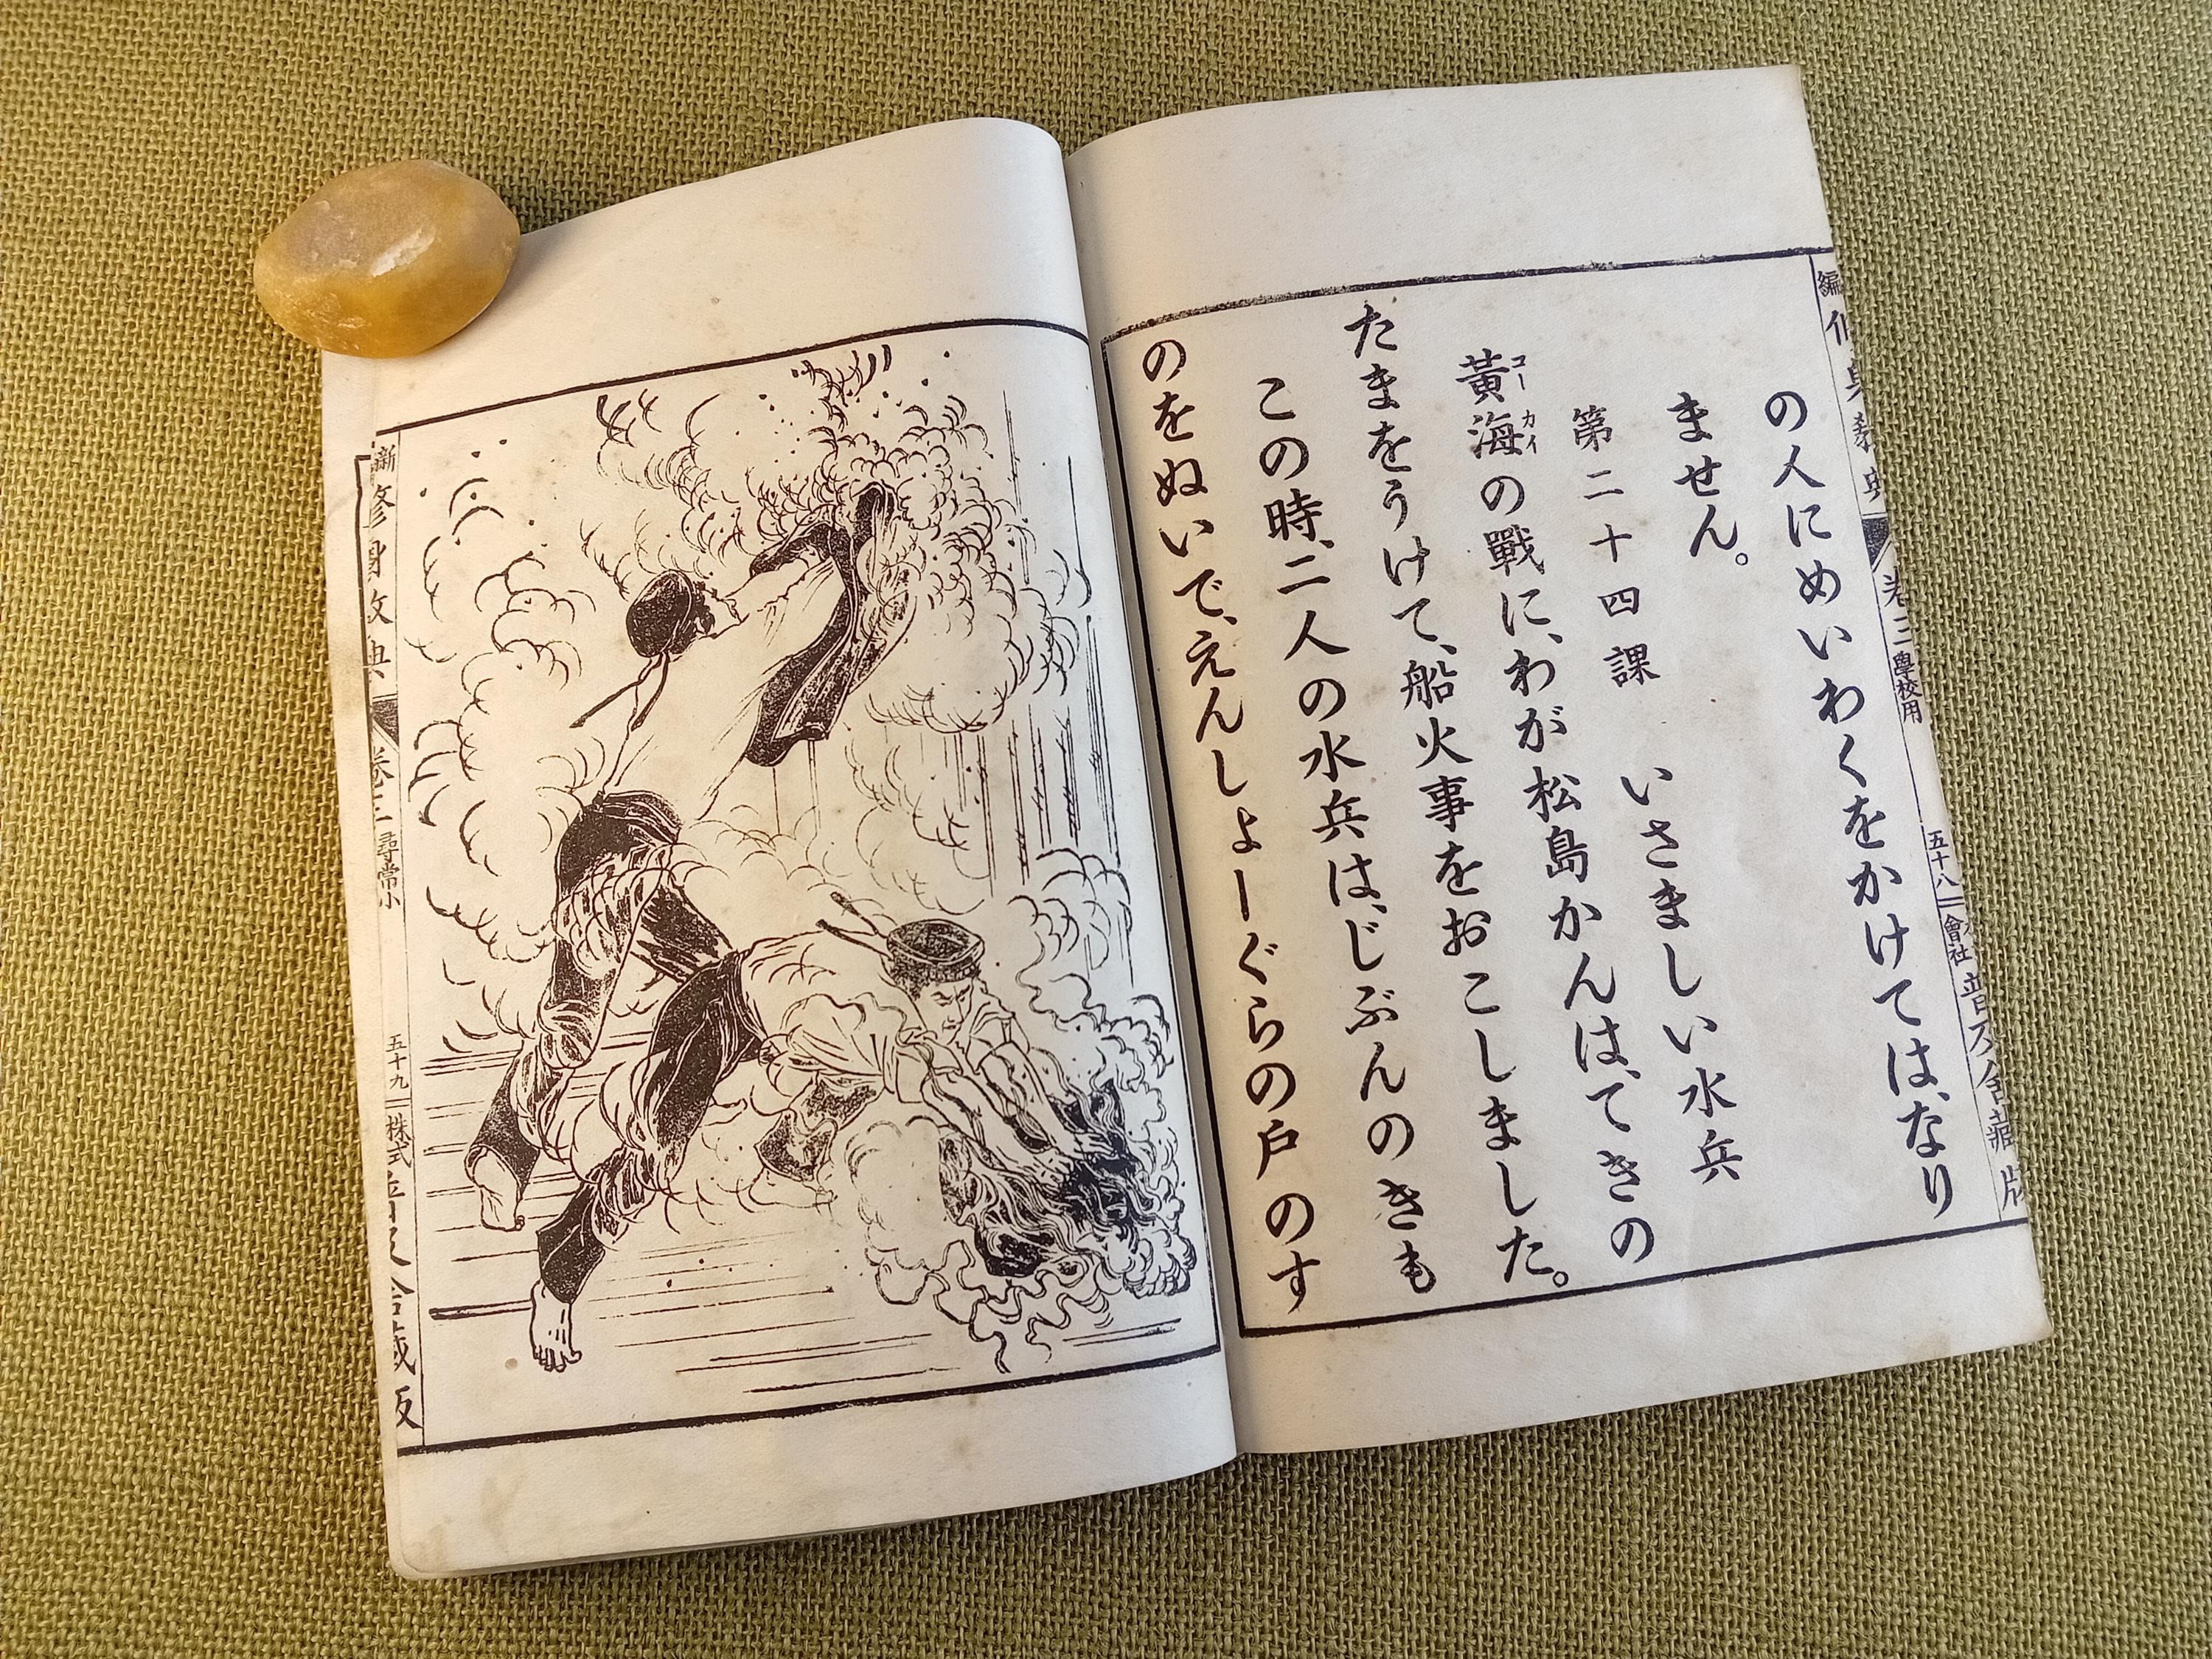 の人にめいわくをかけては、なり
ません。
第二十四課 いさましい水兵
黃海の戰に、わが松島かんは、てきの
コーカイ
たまをうけて、船火事をおこしました。
この時、二人の水兵は、じぶんのきも
のをぬいで、えんしょーぐらの戸のす
編修身敎典
卷三
學校用
五十八
會社
普及舍藏版
新
修身敎典
卷三
尋常小
五十九
株式
普及舍藏版